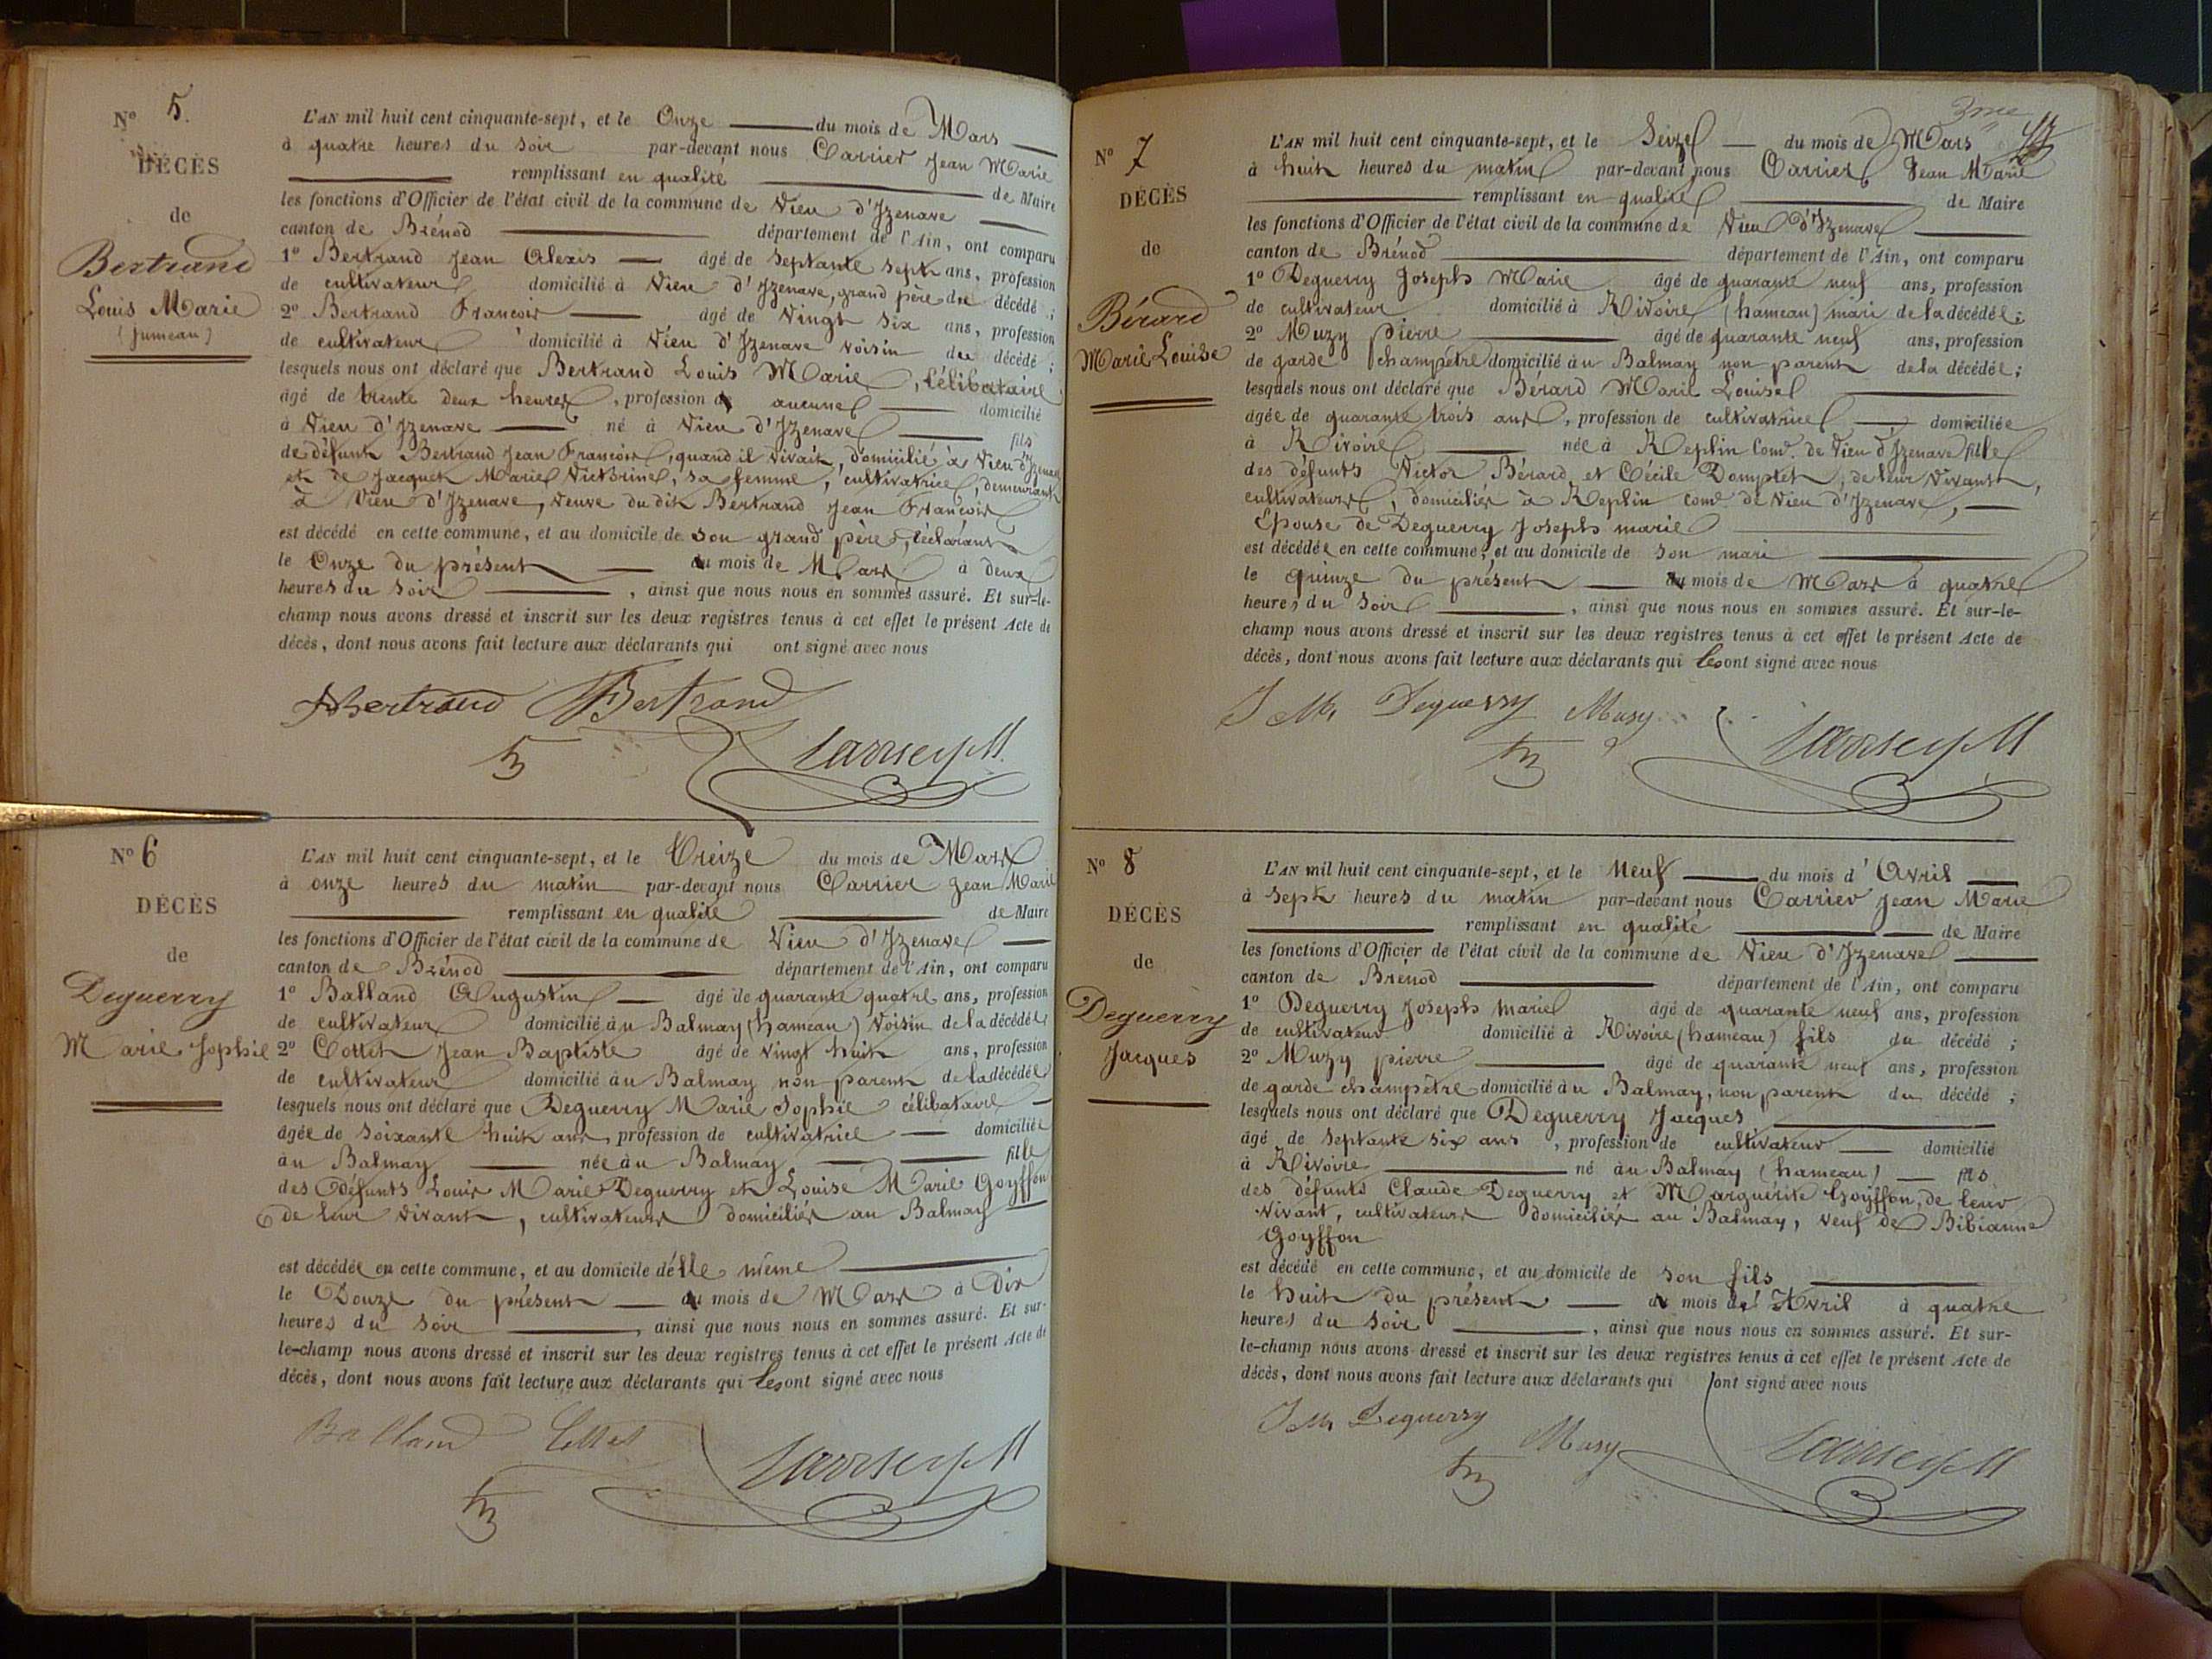 N° 5.
DÉCÈS
de
Bertrand
Louis Marie
(jumeau)
L'AN mil huit cent cinquante-sept, et le Onze du mois de Mars
à quatre heures du soir par-devant nous Carrier Jean Marie
remplissant en qualité de Maire
les fonctions d'Officier de l'état civil de la commune de Vieu d'Izenave
canton de Brénod département de l'Ain, ont comparu
1° Bertrand Jean Alexis âgé de Septante Sept ans, profession
de cultivateur domicilié à Vieu d'Izenave, grand père du décédé ;
2° Bertrand François âgé de Vingt Six ans, profession
de cultivateur domicilié à Vieu d'Izenave voisin du décédé ;
lesquels nous ont déclaré que Bertrand Louis Marie, Célibataire
âgé de trente deux heures, profession d aucune domicilié
à Vieu d'Izenave né à Vieu d'Izenave fils
de défunt Bertrand Jean François, quand il vivait, domicilié à Vieu d'Izenave
et de Jacquet Marie Victorine, sa femme, cultivatrice, demeurant
à Vieu d'Izenave, veuve du dit Bertrand Jean François
est décédé en cette commune, et au domicile de son grand père, déclarant
le Onze du présent du mois de Mars à deux
heures du soir, ainsi que nous nous en sommes assuré. Et sur-le-
champ nous avons dressé et inscrit sur les deux registres tenus à cet effet le présent Acte de
décès, dont nous avons fait lecture aux déclarants qui ont signé avec nous
Bertrand Bertrand
Carrier JM
N° 6
DÉCÈS
de
Deguerry
Marie Sophie
L'AN mil huit cent cinquante-sept, et le Treize du mois de Mars
à onze heures du matin par-devant nous Carrier Jean Marie
remplissant en qualité de Maire
les fonctions d'Officier de l'état civil de la commune de Vieu d'Izenave
canton de Brénod département de l'Ain, ont comparu
1° Balland Augustin âgé de quarante quatre ans, profession
de cultivateur domicilié au Balmay (hameau) Voisin de la décédée
2° Cottet Jean Baptiste âgé de vingt huit ans, profession
de cultivateur domicilié au Balmay non parent de la décédée
lesquels nous ont déclaré que Deguerry Marie Sophie célibataire
âgée de soixante huit ans, profession de cultivatrice domiciliée
au Balmay née au Balmay fille
des défunts Louis Marie Deguerry et Louise Marie Goyffon
de leur vivant, cultivateurs domiciliés au Balmay
est décédée en cette commune, et au domicile d'elle même
le Douze du présent du mois de Mars à Dix
heures du soir, ainsi que nous nous en sommes assuré. Et sur-
le-champ nous avons dressé et inscrit sur les deux registres tenus à cet effet le présent Acte de
décès, dont nous avons fait lecture aux déclarants qui les ont signé avec nous
Balland Cottet
Carrier JM
N° 7
DÉCÈS
de
Bérard
Marie Louise
L'AN mil huit cent cinquante-sept, et le Seize du mois de Mars
à huit heures du matin par-devant nous Carrier Jean Marie
remplissant en qualité de Maire
les fonctions d'Officier de l'état civil de la commune de Vieu d'Izenave
canton de Brénod département de l'Ain, ont comparu
1° Deguerry Joseph Marie âgé de quarante neuf ans, profession
de cultivateur domicilié à Rivoire (hameau) mari de la décédée ;
2° Muzy Pierre âgé de quarante neuf ans, profession
de garde champêtre domicilié au Balmay non parent de la décédée ;
lesquels nous ont déclaré que Bérard Marie Louise
âgée de quarante trois ans, profession de cultivatrice domiciliée
à Rivoire née à Replin Com.e de Vieu d'Izenave fille
des défunts Victor Bérard et Cécile Domplet, de leur vivant,
cultivateurs, domiciliés à Replin com.e de Vieu d'Izenave,
Epouse de Deguerry Joseph marie
est décédée en cette commune, et au domicile de son mari
le quinze du présent du mois de Mars à quatre
heures du soir, ainsi que nous nous en sommes assuré. Et sur-le-
champ nous avons dressé et inscrit sur les deux registres tenus à cet effet le présent Acte de
décès, dont nous avons fait lecture aux déclarants qui les ont signé avec nous
J Mie Deguerry Muzy
Carrier JM
N° 8
DÉCÈS
de
Deguerry
Jacques
L'AN mil huit cent cinquante-sept, et le Neuf du mois d'Avril
à sept heures du matin par-devant nous Carrier Jean Marie
remplissant en qualité de Maire
les fonctions d'Officier de l'état civil de la commune de Vieu d'Izenave
canton de Brénod département de l'Ain, ont comparu
1° Deguerry Joseph marie âgé de quarante neuf ans, profession
de cultivateur domicilié à Rivoire (hameau) fils du décédé ;
2° Muzy pierre âgé de quarante neuf ans, profession
de garde champêtre domicilié au Balmay, non parent du décédé ;
lesquels nous ont déclaré que Deguerry Jacques
âgé de Septante six ans, profession de cultivateur domicilié
à Rivoire né au Balmay (hameau) fils
des défunts Claude Deguerry et Marguérite Goyffon, de leur
vivant, cultivateurs domiciliés au Balmay, veuf de Bibianne
Goyffon
est décédé en cette commune, et au domicile de son fils
le huit du présent du mois de Avril à quatre
heures du soir, ainsi que nous nous en sommes assuré. Et sur-
le-champ nous avons dressé et inscrit sur les deux registres tenus à cet effet le présent Acte de
décès, dont nous avons fait lecture aux déclarants qui ont signé avec nous
J Mie Deguerry
Muzy
Carrier JM